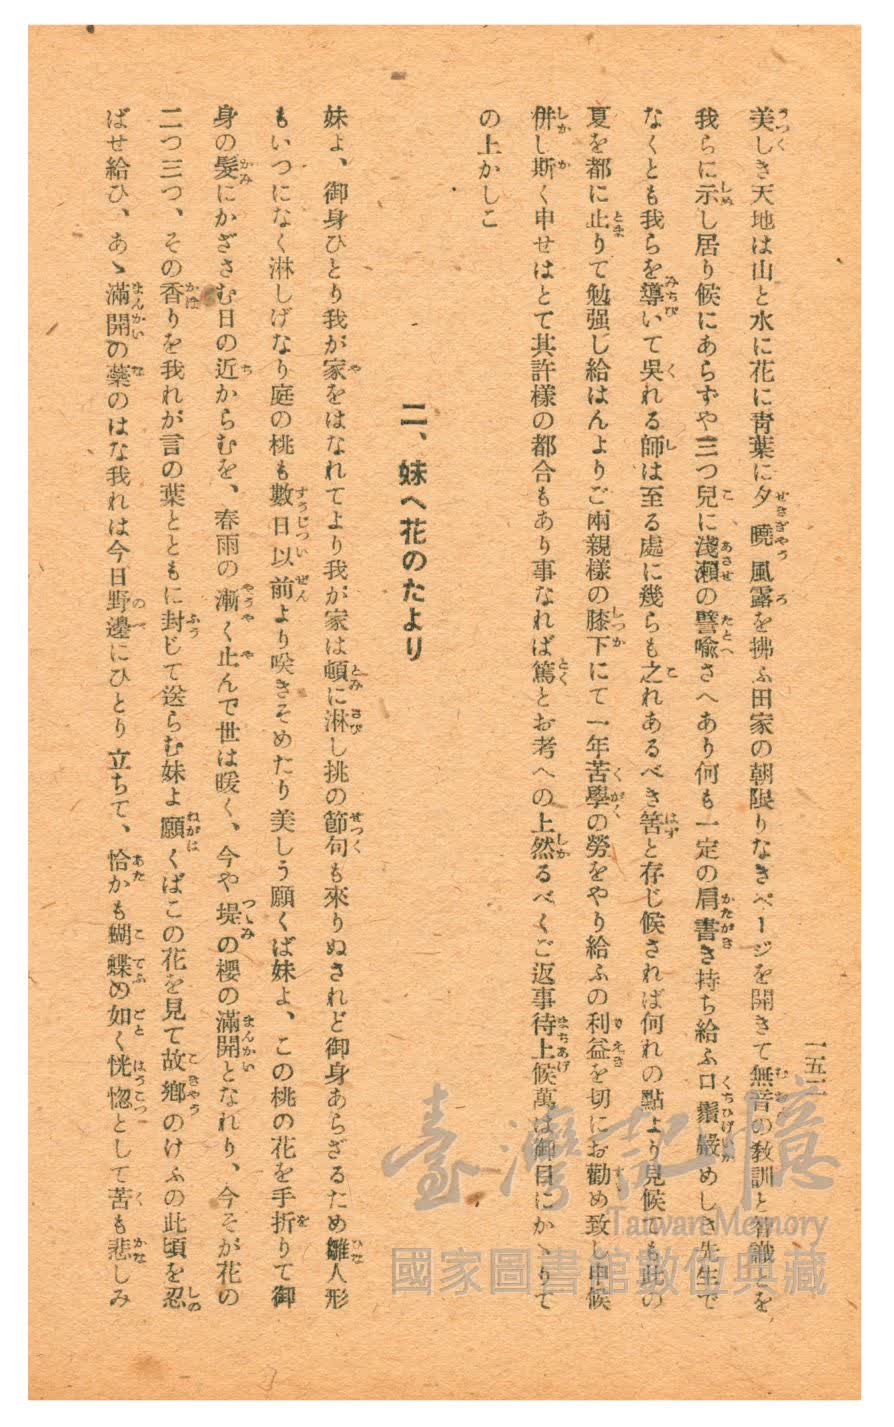 一五二
美しき天地は山と水に花に靑葉に夕曉風露を拂ふ田家の朝限りなきページを開きて無音の敎訓と智識とを
我らに示し居り候にあらずや三つ兒に淺瀨の譬喩さへあり何も一定の肩書き持ち給ふ口鬚嚴めしき先生で
なくとも我らを導いて吳れる師は至る處に幾らも之れあるべき筈と存じ候されば何れの點より見候ても此の
夏を都に止りて勉强し給はんよりご兩親樣の膝下にて一年苦學の勞をやり給ふの利益を切にお勸め致し申候
併し斯く申せはとて其許樣の都合もあり事なれば篤とお考への上然るべくご返事待上候萬は御目にかゝりて
の上かしこ
二、妹へ花のたより
妹よ、御身ひとり我が家をはなれてより我が家は頓に淋し挑の節句も來りぬされど御身あらざるため雛人形
もいつになく淋しげなり庭の桃も數日以前より咲きそめたり美しう願くば妹よ、この桃の花を手折りて御
身の髮にかざさむ日の近からむを、春雨の漸く止んで世は暖く、今や堤の櫻の滿開となれり、今そが花の
二つ三つ、その香りを我れが言の葉とともに封じて送らむ妹よ願くばこの花を見て故鄕のけふの此頃を忍
ばせ給ひ、あゝ滿開の藥のはな我れは今日野邊にひとり立ちて、恰かも蝴蝶め如く恍惚として苦も悲しみ
臺灣記憶
Taiwan Memory
國家圖書館數位典藏